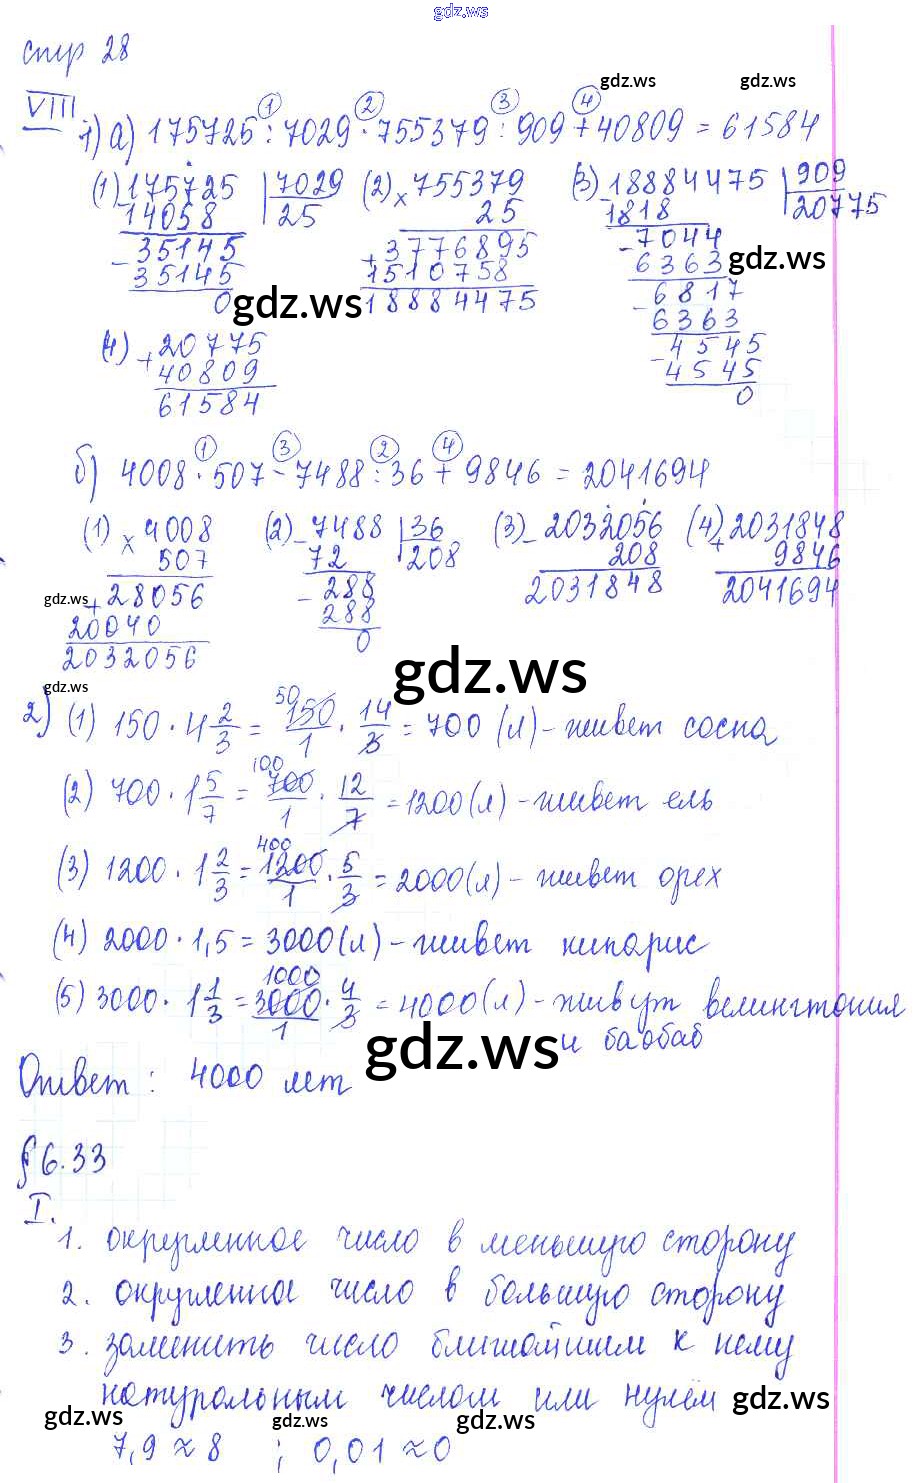 gdz.ws
стр 28
gdz.ws gdz.ws
VIII
1) а) 175725 : 7029 · 755379 : 909 + 40809 = 61584
① ② ③ ④
(1) 175725 | 7029
14058 | 25
35145
35145
0
(2) × 755379
25
+ 3776895
1510758
18884475
(3) 18884475 | 909
1818 | 20775
- 7044
6363
- 6817
6363
- 4545
4545
0
gdz.ws gdz.ws
(4) + 20775
40809
61584
б) 4008 · 507 - 7488 : 36 + 9846 = 2041694
① ③ ② ④
(1) × 4008
507
+ 28056
20040
2032056
(2) - 7488 | 36
72 | 208
- 288
288
0
(3) - 2032056
208
2031848
(4) + 2031848
9846
2041694
gdz.ws
gdz.ws
gdz.ws
2) (1) 150 · 4 2/3 = 150/1 · 14/3 = 700 (л) - живет сосна
50
(2) 700 · 1 5/7 = 700/1 · 12/7 = 1200 (л) - живет ель
100
(3) 1200 · 1 2/3 = 1200/1 · 5/3 = 2000 (л) - живет орех
400
(4) 2000 · 1,5 = 3000 (л) - живет кипарис
(5) 3000 · 1 1/3 = 3000/1 · 4/3 = 4000 (л) - живут велингтония
1000
и баобаб
gdz.ws
Ответ : 4000 лет
§ 6.33
I.
1. округленное число в меньшую сторону
2. округленное число в большую сторону
3. заменить число ближайшим к нему
натуральным числом или нулём
gdz.ws gdz.ws gdz.ws gdz.ws
7,9 ≈ 8 ; 0,01 ≈ 0